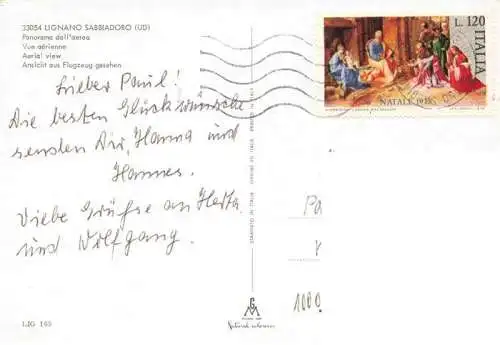 33054 LIGNANO SABBIADORO (UD)
Panorama dall'aereo
Vue aérienne
Aerial view
Ansicht aus Flugzeug gesehen
Lieber Paul!
Die besten Glückwünsche
senden Dir, Hanna und
Hannes.
Viele Grüße an Herta
und Wolfgang.
LIG 165
L. 120
ITALIA
NATALE 1975
Pa
1000